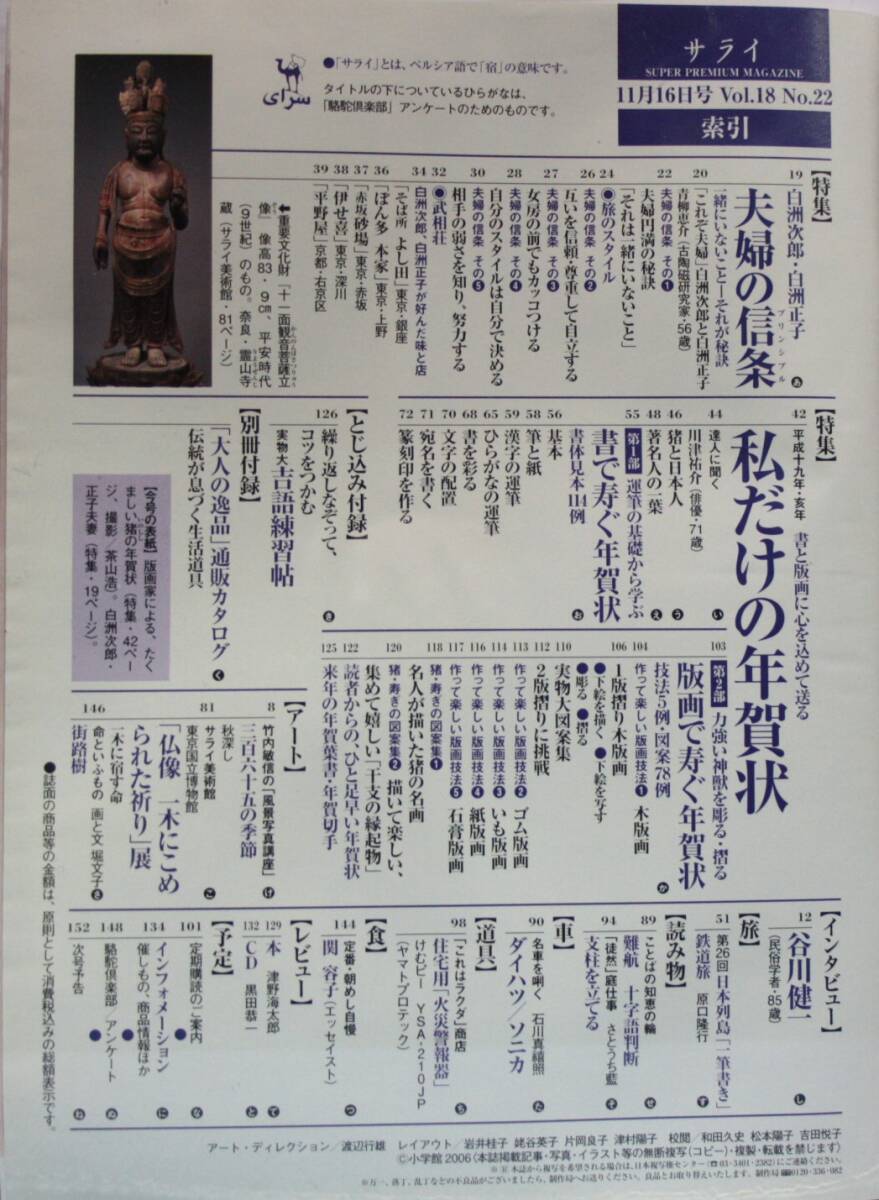 サライ
SUPER PREMIUM MAGAZINE
11月16日号 Vol.18 No.22
索引
●「サライ」とは、ペルシア語で「宿」の意味です。
タイトルの下についているひらがなは、
「駱駝倶楽部」アンケートのためのものです。
سرای
【特集】
19 白洲次郎・白洲正子
夫婦の信条 プリンシプル あ
一緒にいないこと―それが秘訣
20 「これぞ夫婦」白洲次郎と白洲正子
青柳恵介(古陶磁研究家・56歳)
22 夫婦の信条 その❶
夫婦円満の秘訣
「それは一緒にいないこと」
24 ◉旅のスタイル
26 夫婦の信条 その❷
互いを信頼・尊重して自立する
27 夫婦の信条 その❸
女房の前でもカッコつける
28 夫婦の信条 その❹
自分のスタイルは自分で決める
30 夫婦の信条 その❺
相手の弱さを知り、努力する
32 ◉武相荘
34 白洲次郎、白洲正子が好んだ味と店
「そば所 よし田」東京・銀座
36 「ぽん多 本家」東京・上野
37 「赤坂砂場」東京・赤坂
38 「伊せ喜」東京・深川
39 「平野屋」京都・右京区
←重要文化財「十一面観音菩薩立
像」像高83・9㎝、平安時代
(9世紀)のもの。奈良・霊山寺
蔵(サライ美術館・81ページ)
【特集】
42 平成十九年・亥年 書と版画に心を込めて送る
私だけの年賀状
44 達人に聞く
川津祐介(俳優・71歳) い
46 猪と日本人 う
48 著名人の一葉 え
55 第1部 運筆の基礎から学ぶ
書で寿ぐ年賀状 お
書体見本114例
56 基本
58 筆と紙
59 漢字の運筆
65 ひらがなの運筆
68 書を彩る
70 文字の配置
71 宛名を書く
72 篆刻印を作る
103 第2部 力強い神獣を彫る・摺る
版画で寿ぐ年賀状 か
技法5例・図案78例
104 作って楽しい版画技法❶ 木版画
106 1版摺り木版画
●下絵を描く ●下絵を写す
●彫る ●摺る
110 実物大図案集
112 2版摺りに挑戦
113 作って楽しい版画技法❷ ゴム版画
114 作って楽しい版画技法❸ いも版画
116 作って楽しい版画技法❹ 紙版画
117 作って楽しい版画技法❺ 石膏版画
118 猪・寿ぎの図案集❶
名人が描いた猪の名画
120 猪・寿ぎの図案集❷ 描いて楽しい、
集めて嬉しい「干支の縁起物」
122 読者からの、ひと足早い年賀状
125 来年の年賀葉書・年賀切手
【とじ込み付録】
126 繰り返しなぞって、
コツをつかむ
実物大 吉語練習帖 き
【別冊付録】
「大人の逸品」通販カタログ く
伝統が息づく生活道具
【今号の表紙】版画家による、たく
ましい猪の年賀状(特集・42ペー
ジ、撮影/茶山浩)。白洲次郎・
正子夫妻(特集・19ページ)。
【アート】
8 竹内敏信の「風景写真講座」 け
三百六十五の季節
秋深し
81 サライ美術館 こ
東京国立博物館
「仏像 一木にこめ
られた祈り」展
一木に宿す命
146 命といふもの 画と文 堀文子 さ
街路樹
【インタビュー】
12 谷川健一 し
(民俗学者・85歳)
【旅】
51 第26回 日本列島「一筆書き」 す
鉄道旅 原口隆行
【読み物】
89 ことばの知恵の輪 せ
難航 十字語判断
94 「徒然」庭仕事 さとうち藍 そ
支柱を立てる
【車】
90 名車を唎く 石川真禧照 た
ダイハツ/ソニカ
【道具】
98 「これはラクダ」商店 ち
住宅用「火災警報器」
けむピー YSA-210JP
(ヤマトプロテック)
【食】
144 定番・朝めし自慢 つ
関 容子(エッセイスト)
【レビュー】
129 本 津野海太郎 て
132 CD 黒田恭一 と
【予定】
101 定期購読のご案内 な
134 インフォメーション に
催しもの、商品情報ほか
148 駱駝倶楽部/アンケート ぬ
152 次号予告 ね
●誌面の商品等の金額は、原則として消費税込みの総額表示です。
アート・ディレクション/渡辺行雄 レイアウト/岩井桂子 姥谷英子 片岡良子 津村陽子 校閲/和田久史 松本陽子 吉田悦子
©小学館2006〈本誌掲載記事・写真・イラスト等の無断複写(コピー)・複製・転載を禁じます〉
※Ⓡ本誌から複写を希望される場合は、日本複写権センター(☎03-3401-2382)にご連絡ください。
※万一、落丁、乱丁などの不良品がございましたら、制作局へお送りください。良品とお取り替えいたします。制作局☎0120-336-082